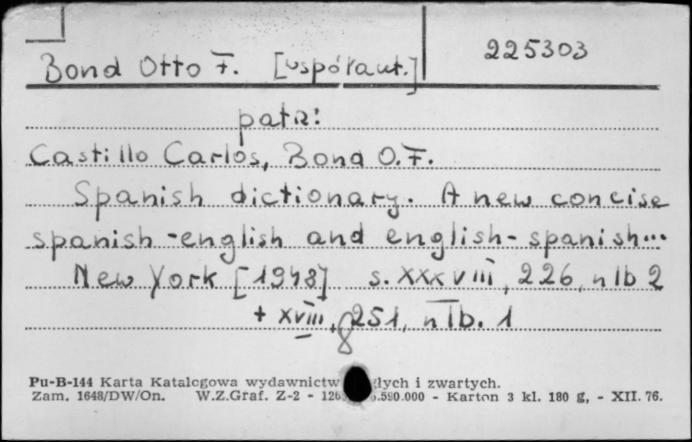 Bond Otto F. [współaut.] 225303
patrz:
Castillo Carlos, Bond O.F.
Spanish dictionary. A new concise
spanish-english and english-spanish...
New York [1948] s. XXXVIII, 226, nlb 2
+ XVIII, 251, nlb. 1
8
Pu-B-144 Karta Katalogowa wydawnictw głych i zwartych.
Zam. 1648/DW/On. W.Z.Graf. Z-2 - .590.000 - Karton 3 kl. 180 g, - XII. 76.